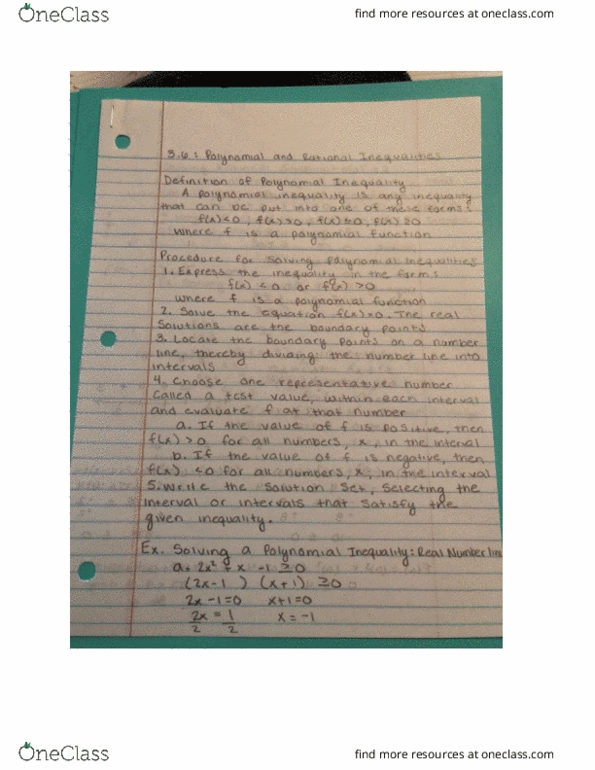 OneClass
find more resources at oneclass.com
3.6: Polynomial and Rational Inequalities
Definition of Polynomial Inequality
A polynomial inequality is any inequality
that can be put into one of these forms:
f(x)<0, f(x)>0, f(x)≤0, f(x)≥0
where f is a polynomial function
Procedure for Solving Polynomial Inequalities
1. Express the inequality in the form:
f(x) <0 or f(x) >0
where f is a polynomial function
2. Solve the equation f(x)=0. The real
solutions are the boundary points
3. Locate the boundary points on a number
line, thereby dividing the number line into
intervals
4. Choose one representative number
called a test value, within each interval
and evaluate f at that number
a. If the value of f is positive, then
f(x) >0 for all numbers, x, in the interval
b. If the value of f is negative, then
f(x) <0 for all numbers, x, in the interval
5. Write the solution set, selecting the
interval or intervals that satisfy the
given inequality.
Ex. Solving a Polynomial Inequality: Real Number line
a. 2x² + x -1 ≥0
(2x-1) (x+1) ≥0
2x-1=0 x+1=0
2x/2 = 1/2 x=-1
OneClass
find more resources at oneclass.com